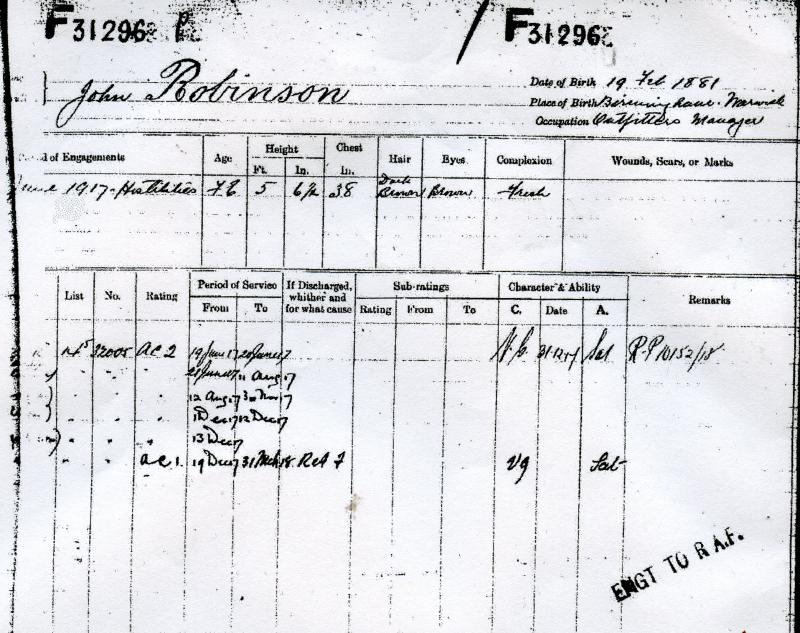 F31296 F31296
John Robinson
Date of Birth 19 Feb 1881
Place of Birth Birmingham. Warwick
Occupation Outfitters Manager
of Engagements Age Height Chest Hair Eyes Complexion Wounds, Scars, or Marks
Ft. In. In.
1917. Hostilities 5 6½ 38 Dark Brown Brown Fresh
List No. Rating Period of Service If Discharged, whither and for what cause Sub-ratings Character & Ability Remarks
From To Rating From To C. Date A.
15 32005 AC2 19 June 17 20 June 17 V.G. 31-12-17 Sat R.P 10152/18
" " " 21 June 17 11 Aug 17
" " " 12 Aug 17 30 Nov 17
" " " 1 Dec 17 12 Dec 17
" " " 13 Dec 17
" " AC 1. 19 Dec 17 31 Mch 18 VG Sat
ENGT TO R.A.F.